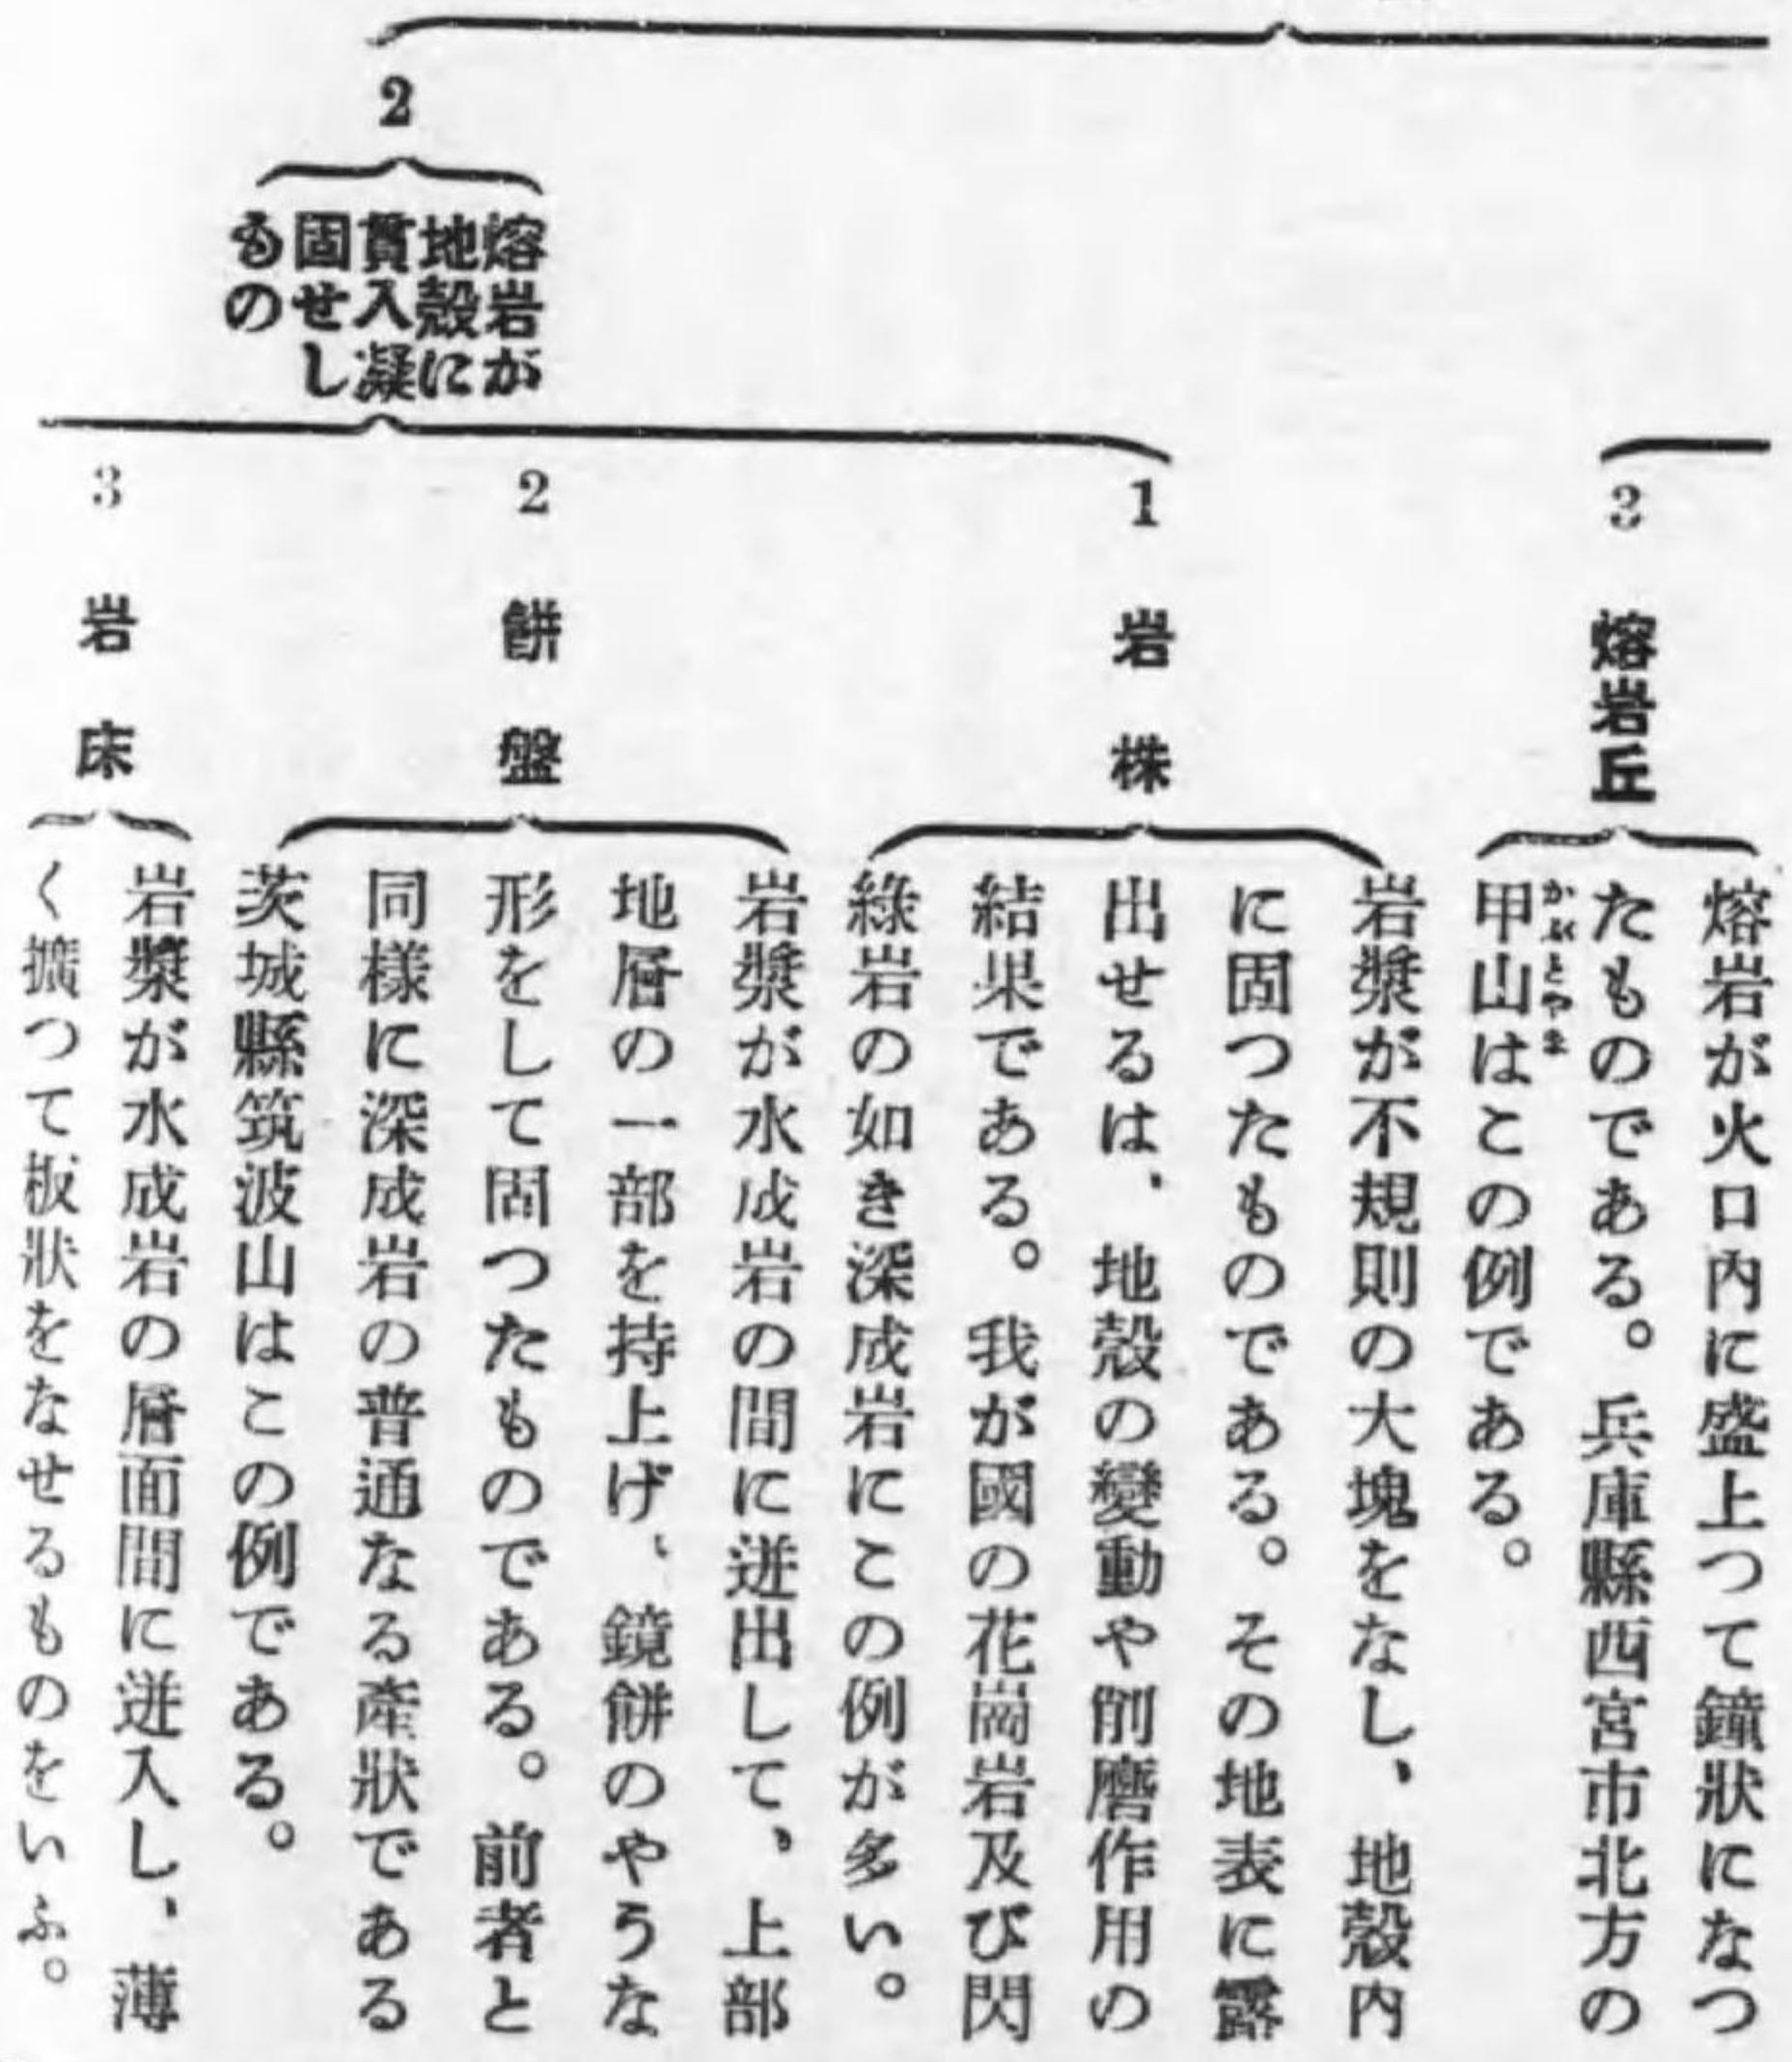 3 熔岩丘
熔岩が火口內に盛上つて鐘狀になつ
たものである。兵庫縣西宮市北方の
甲山はこの例である。
かぶとやま
2
熔岩が
地殼に
貫入凝
固せし
もの
1 岩株
岩漿が不規則の大塊をなし、地殼內
に固つたものである。その地表に露
出せるは、地殼の變動や削磨作用の
結果である。我が國の花崗岩及び閃
綠岩の如き深成岩にこの例が多い。
2 餅盤
岩漿が水成岩の間に迸出して、上部
地層の一部を持上げ、鏡餅のやうな
形をして固つたものである。前者と
同樣に深成岩の普通なる產狀である
茨城縣筑波山はこの例である。
3 岩床
岩漿が水成岩の層面間に迸入し、薄
く擴つて板狀をなせるものをいふ。